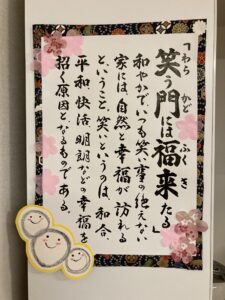 「笑う門には福来たる」
わら かど ふく き
和やかで、いつも笑い事の絶えない
家には、自然と幸福が訪れる
ということ。笑いというのは、和合、
平和、快活、明朗などの幸福を
招く原因となるものである。